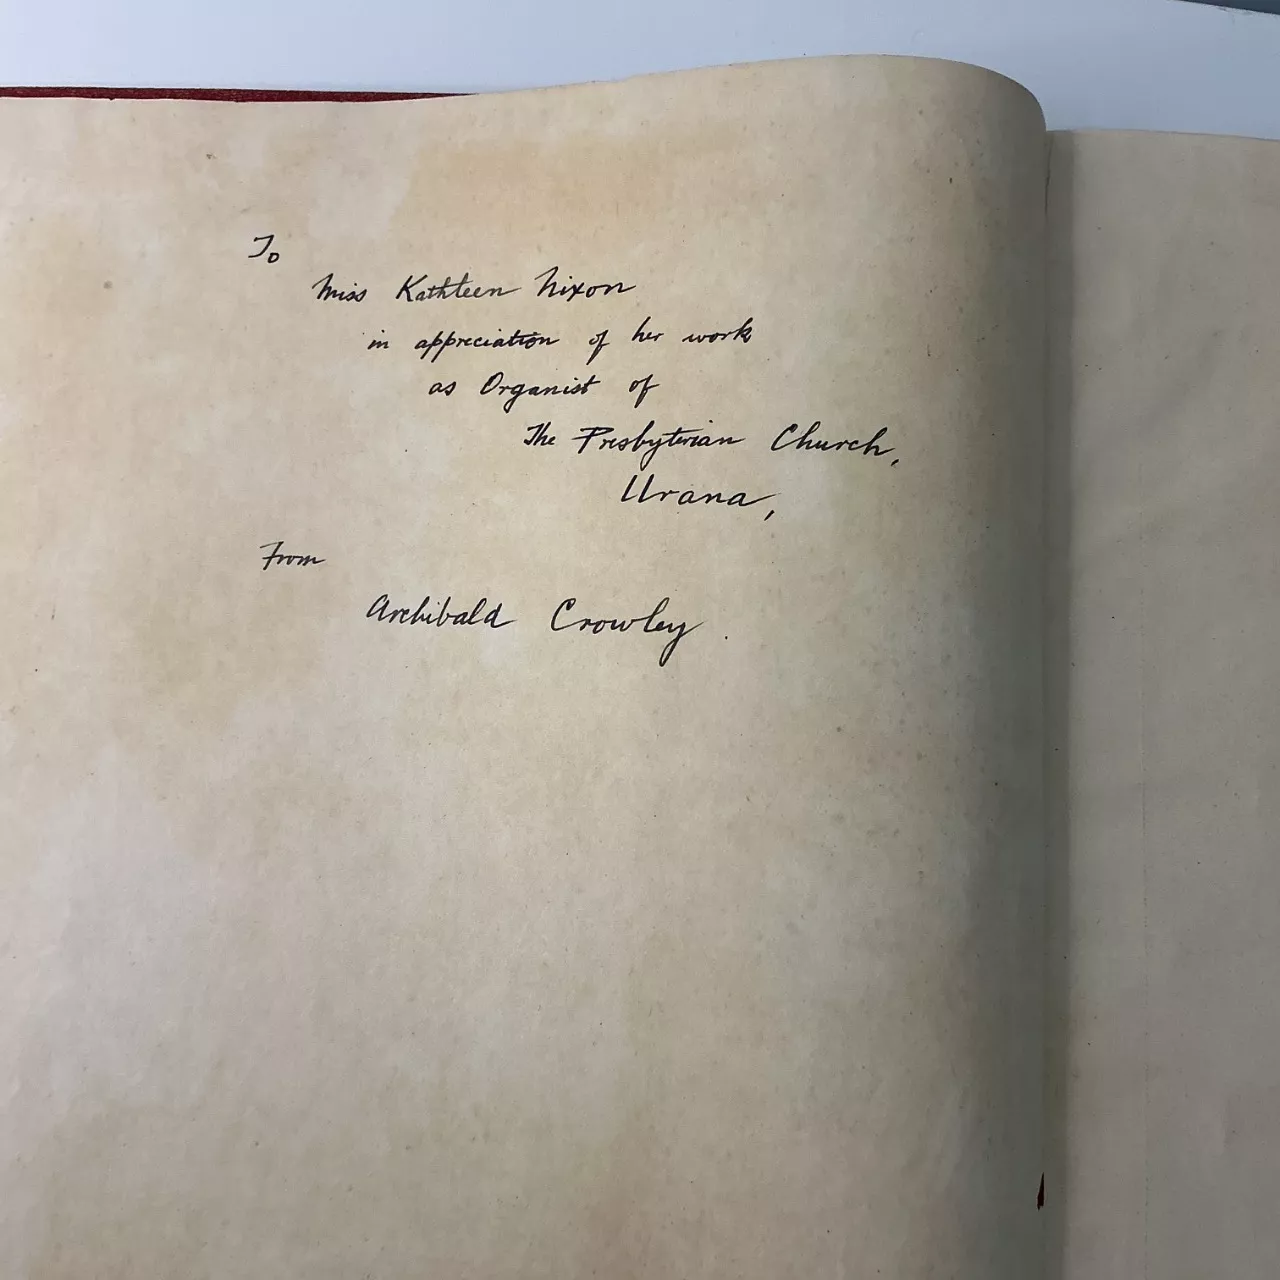 To
Miss Kathleen Nixon
in appreciation of her work
as Organist of
The Presbyterian Church,
Urana,
From
Archibald Crowley.